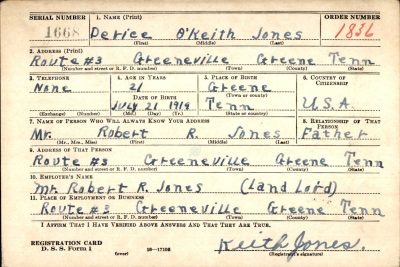 SERIAL NUMBER 1. NAME (Print) ORDER NUMBER
1668 Derice O'Keith Jones 1836
(First) (Middle) (Last)
2. ADDRESS (Print)
Route #3 Greeneville Greene Tenn
(Number and street or R. F. D. number) (Town) (County) (State)
3. TELEPHONE 4. AGE IN YEARS 5. PLACE OF BIRTH 6. COUNTRY OF CITIZENSHIP
None 21 Greene
DATE OF BIRTH (Town or county)
July 21 1919 Tenn U.S.A.
(Exchange) (Number) (Mo.) (Day) (Yr.) (State or country)
7. NAME OF PERSON WHO WILL ALWAYS KNOW YOUR ADDRESS 8. RELATIONSHIP OF THAT PERSON
Mr. Robert R. Jones Father
(Mr., Mrs., Miss) (First) (Middle) (Last)
9. ADDRESS OF THAT PERSON
Route #3 Greeneville Greene Tenn
(Number and street or R. F. D. number) (Town) (County) (State)
10. EMPLOYER'S NAME
Mr. Robert R. Jones (Land Lord)
11. PLACE OF EMPLOYMENT OR BUSINESS
Route #3 Greeneville Greene Tenn
(Number and street or R. F. D. number) (Town) (County) (State)
I AFFIRM THAT I HAVE VERIFIED ABOVE ANSWERS AND THAT THEY ARE TRUE.
REGISTRATION CARD
D. S. S. Form 1 (over) 16—17105 Keith Jones.
(Registrant's signature)